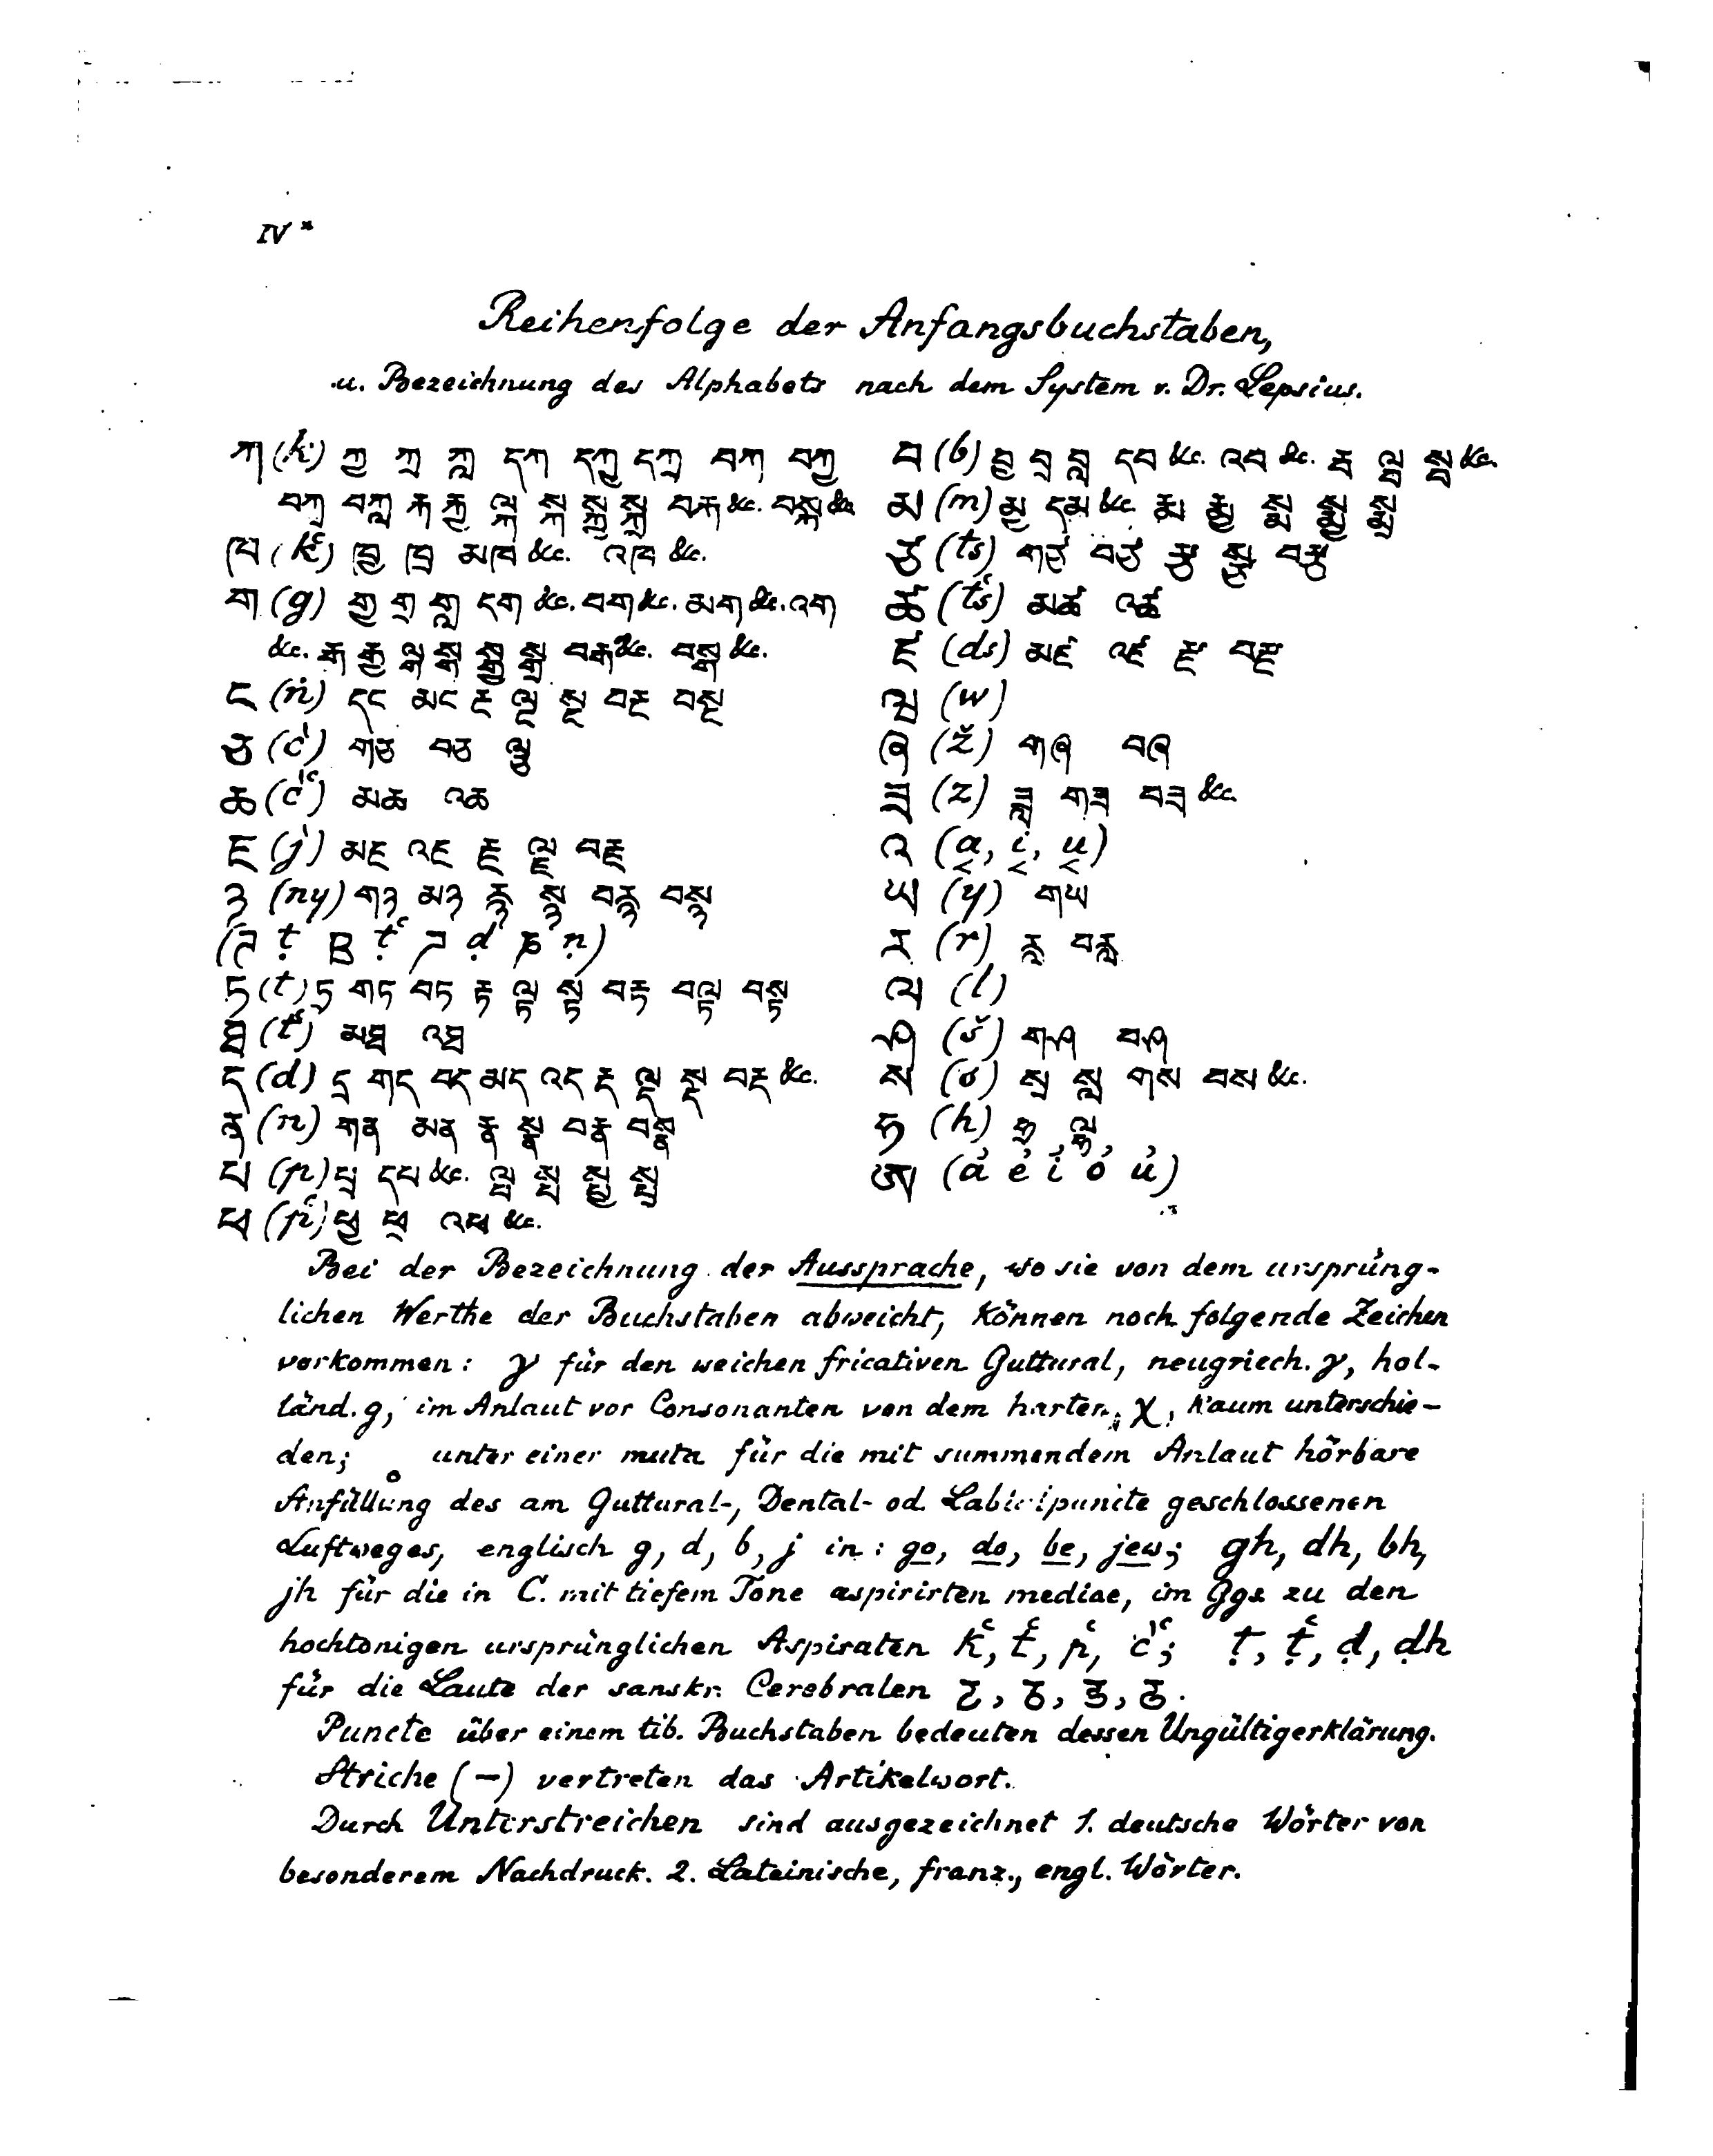 IV *
Reihenfolge der Anfangsbuchstaben,
u. Bezeichnung des Alphabets nach dem System v. Dr. Lepsius.
ཀ (k) ཀྱ ཀྲ ཀླ དཀ དཀྱ དཀྲ བཀ བཀྱ
བཀྲ བཀླ རྐ རྐྱ ལྐ སྐ སྐྱ སྐྲ བརྐ &c. བསྐ &c.
ཁ (k̔) ཁྱ ཁྲ མཁ &c. འཁ &c.
ག (g) གྱ གྲ གླ དག &c. བག &c. མག &c. འག
&c. རྒ རྒྱ ལྒ སྒ སྒྱ སྒྲ བརྒ &c. བསྒ &c.
ང (ṅ) དང མང རྔ ལྔ སྔ བརྔ བསྔ
ཅ (c̀) གཅ བཅ ལྕ
ཆ (c̀̔) མཆ འཆ
ཇ (j̀) མཇ འཇ རྗ ལྗ བརྗ
ཉ (ny) གཉ མཉ རྙ སྙ བརྙ བསྙ
(ཊ ṭ ཋ ṭ̔ ཌ ḍ ཎ ṇ)
ཏ (t) ཏྲ གཏ བཏ རྟ ལྟ སྟ བརྟ བལྟ བསྟ
ཐ (t̔) མཐ འཐ
ད (d) དྲ གད བད མད འད རྡ ལྡ སྡ བརྡ &c.
ན (n) གན མན རྣ སྣ བརྣ བསྣ
པ (p) པྲ དཔ &c. ལྤ སྤ སྤྱ སྤྲ
ཕ (p̔) ཕྱ ཕྲ འཕ &c.
བ (b) བྱ བྲ བླ དབ &c. འབ &c. རྦ ལྦ སྦ &c.
མ (m) མྱ དམ &c. རྨ རྨྱ སྨ སྨྱ སྨྲ
ཙ (ts) གཙ བཙ རྩ སྩ བརྩ
ཚ (t̔s) མཚ འཚ
ཛ (ds) མཛ འཛ རྫ བརྫ
ཝ (w)
ཞ (ž) གཞ བཞ
ཟ (z) ཟླ གཟ བཟ &c.
འ (a̱, i̱, u̱)
ཡ (y) གཡ
ར (r) རླ བརླ
ལ (l)
ཤ (š) གཤ བཤ
ས (s) སྲ སླ གས བས &c.
ཧ (h) ཧྲ ལྷ
ཨ (ȧ ė i̓ ȯ u̓)
Bei der Bezeichnung der Aussprache, wo sie von dem ursprüng-
lichen Werthe der Buchstaben abweicht, können noch folgende Zeichen
vorkommen: γ für den weichen fricativen Guttural, neugriech. γ, hol-
länd. g, im Anlaut vor Consonanten von dem harten, χ, kaum unterschie-
den; ˳ unter einer muta für die mit summendem Anlaut hörbare
Anfüllung des am Guttural-, Dental- od. Labialpuncte geschlossenen
Luftweges, englisch g, d, b, j in: go, do, be, jew; gh, dh, bh,
jh für die in C. mit tiefem Tone aspirirten mediae, im Ggs. zu den
hochtonigen ursprünglichen Aspiraten k̔, t̔, p̔, c̀̔; ṭ, ṭ̔, ḍ, ḍh
für die Laute der sanskr. Cerebralen ट, ठ, ड, ढ.
Puncte über einem tib. Buchstaben bedeuten dessen Ungültigerklärung.
Striche (—) vertreten das Artikelwort.
Durch Unterstreichen sind ausgezeichnet 1. deutsche Wörter von
besonderem Nachdruck. 2. Lateinische, franz., engl. Wörter.